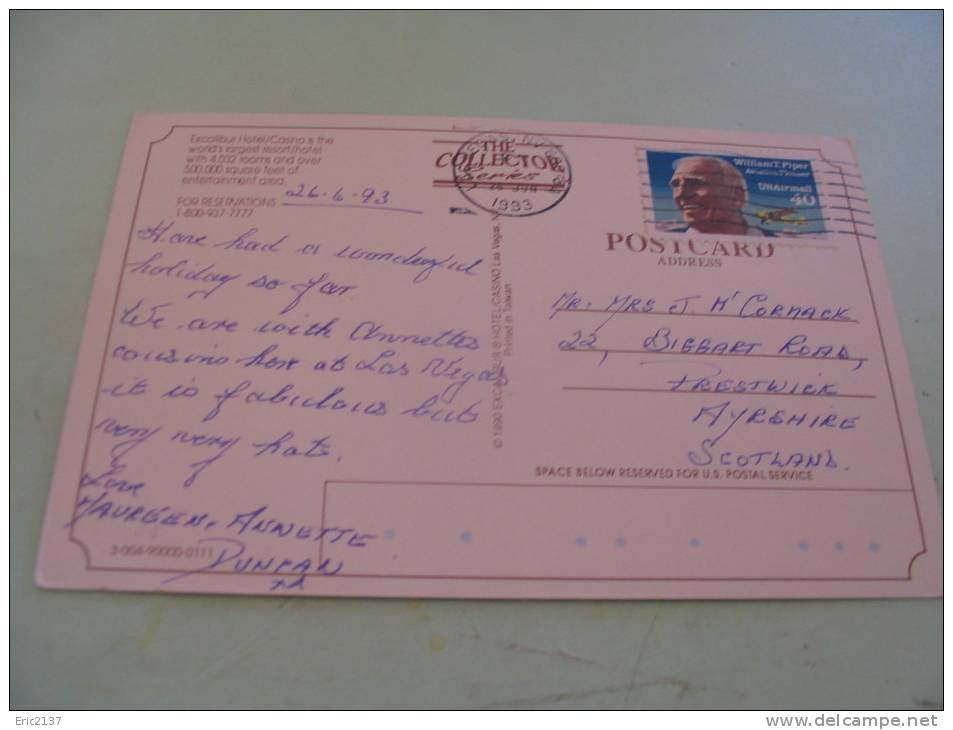 Excalibur Hotel/Casino is the
world's largest resort/hotel
with 4,032 rooms and over
500,000 square feet of
entertainment area.
FOR RESERVATIONS
1-800-937-7777
26-6-93
Have had a wonderful
holiday so far.
We are with Annettes
cousins here at Las Vegas
it is fabulous but
very very hot.
Love
MAUREEN, ANNETTE
DUNCAN
3-004-90000-0111
THE
COLLECTOR
Series
1993
© 1990 EXCALIBUR ® HOTEL/CASINO Las Vegas, N
Printed in Taiwan
William T. Piper
Aviation Pioneer
USAirmail
40
POSTCARD
ADDRESS
MR. MRS J. McCORMACK
22, BIGGART ROAD,
PRESTWICK
AYRSHIRE
SCOTLAND.
SPACE BELOW RESERVED FOR U.S. POSTAL SERVICE
Eric2137
www.delcampe.net